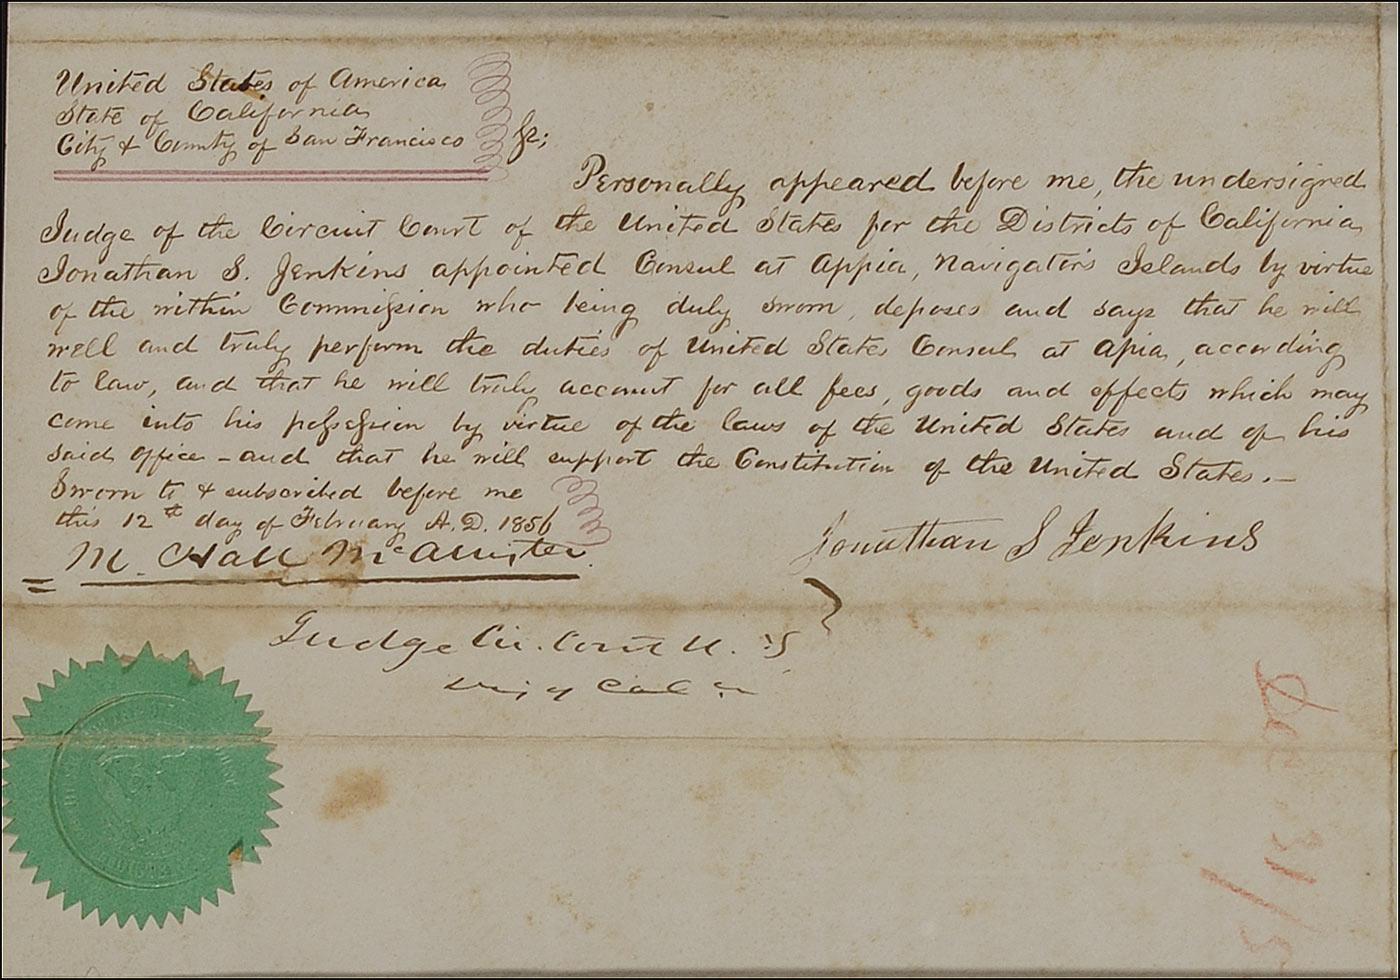 United States of America
State of California
City & County of San Francisco ss;
Personally appeared before me, the undersigned
Judge of the Circuit Court of the United States for the Districts of California
Jonathan S. Jenkins appointed Consul at Appia, Navigator's Islands by virtue
of the within Commission who being duly sworn, deposes and says that he will
well and truly perform the duties of United States Consul at Apia, according
to law, and that he will truly account for all fees, goods and effects which may
come into his possession by virtue of the laws of the United States and of his
said office - and that he will support the Constitution of the United States. -
Sworn to & subscribed before me
this 12th day of February A.D. 1856
M. Hall McAllister
Jonathan S Jenkins
Judge Cir. Court U. S